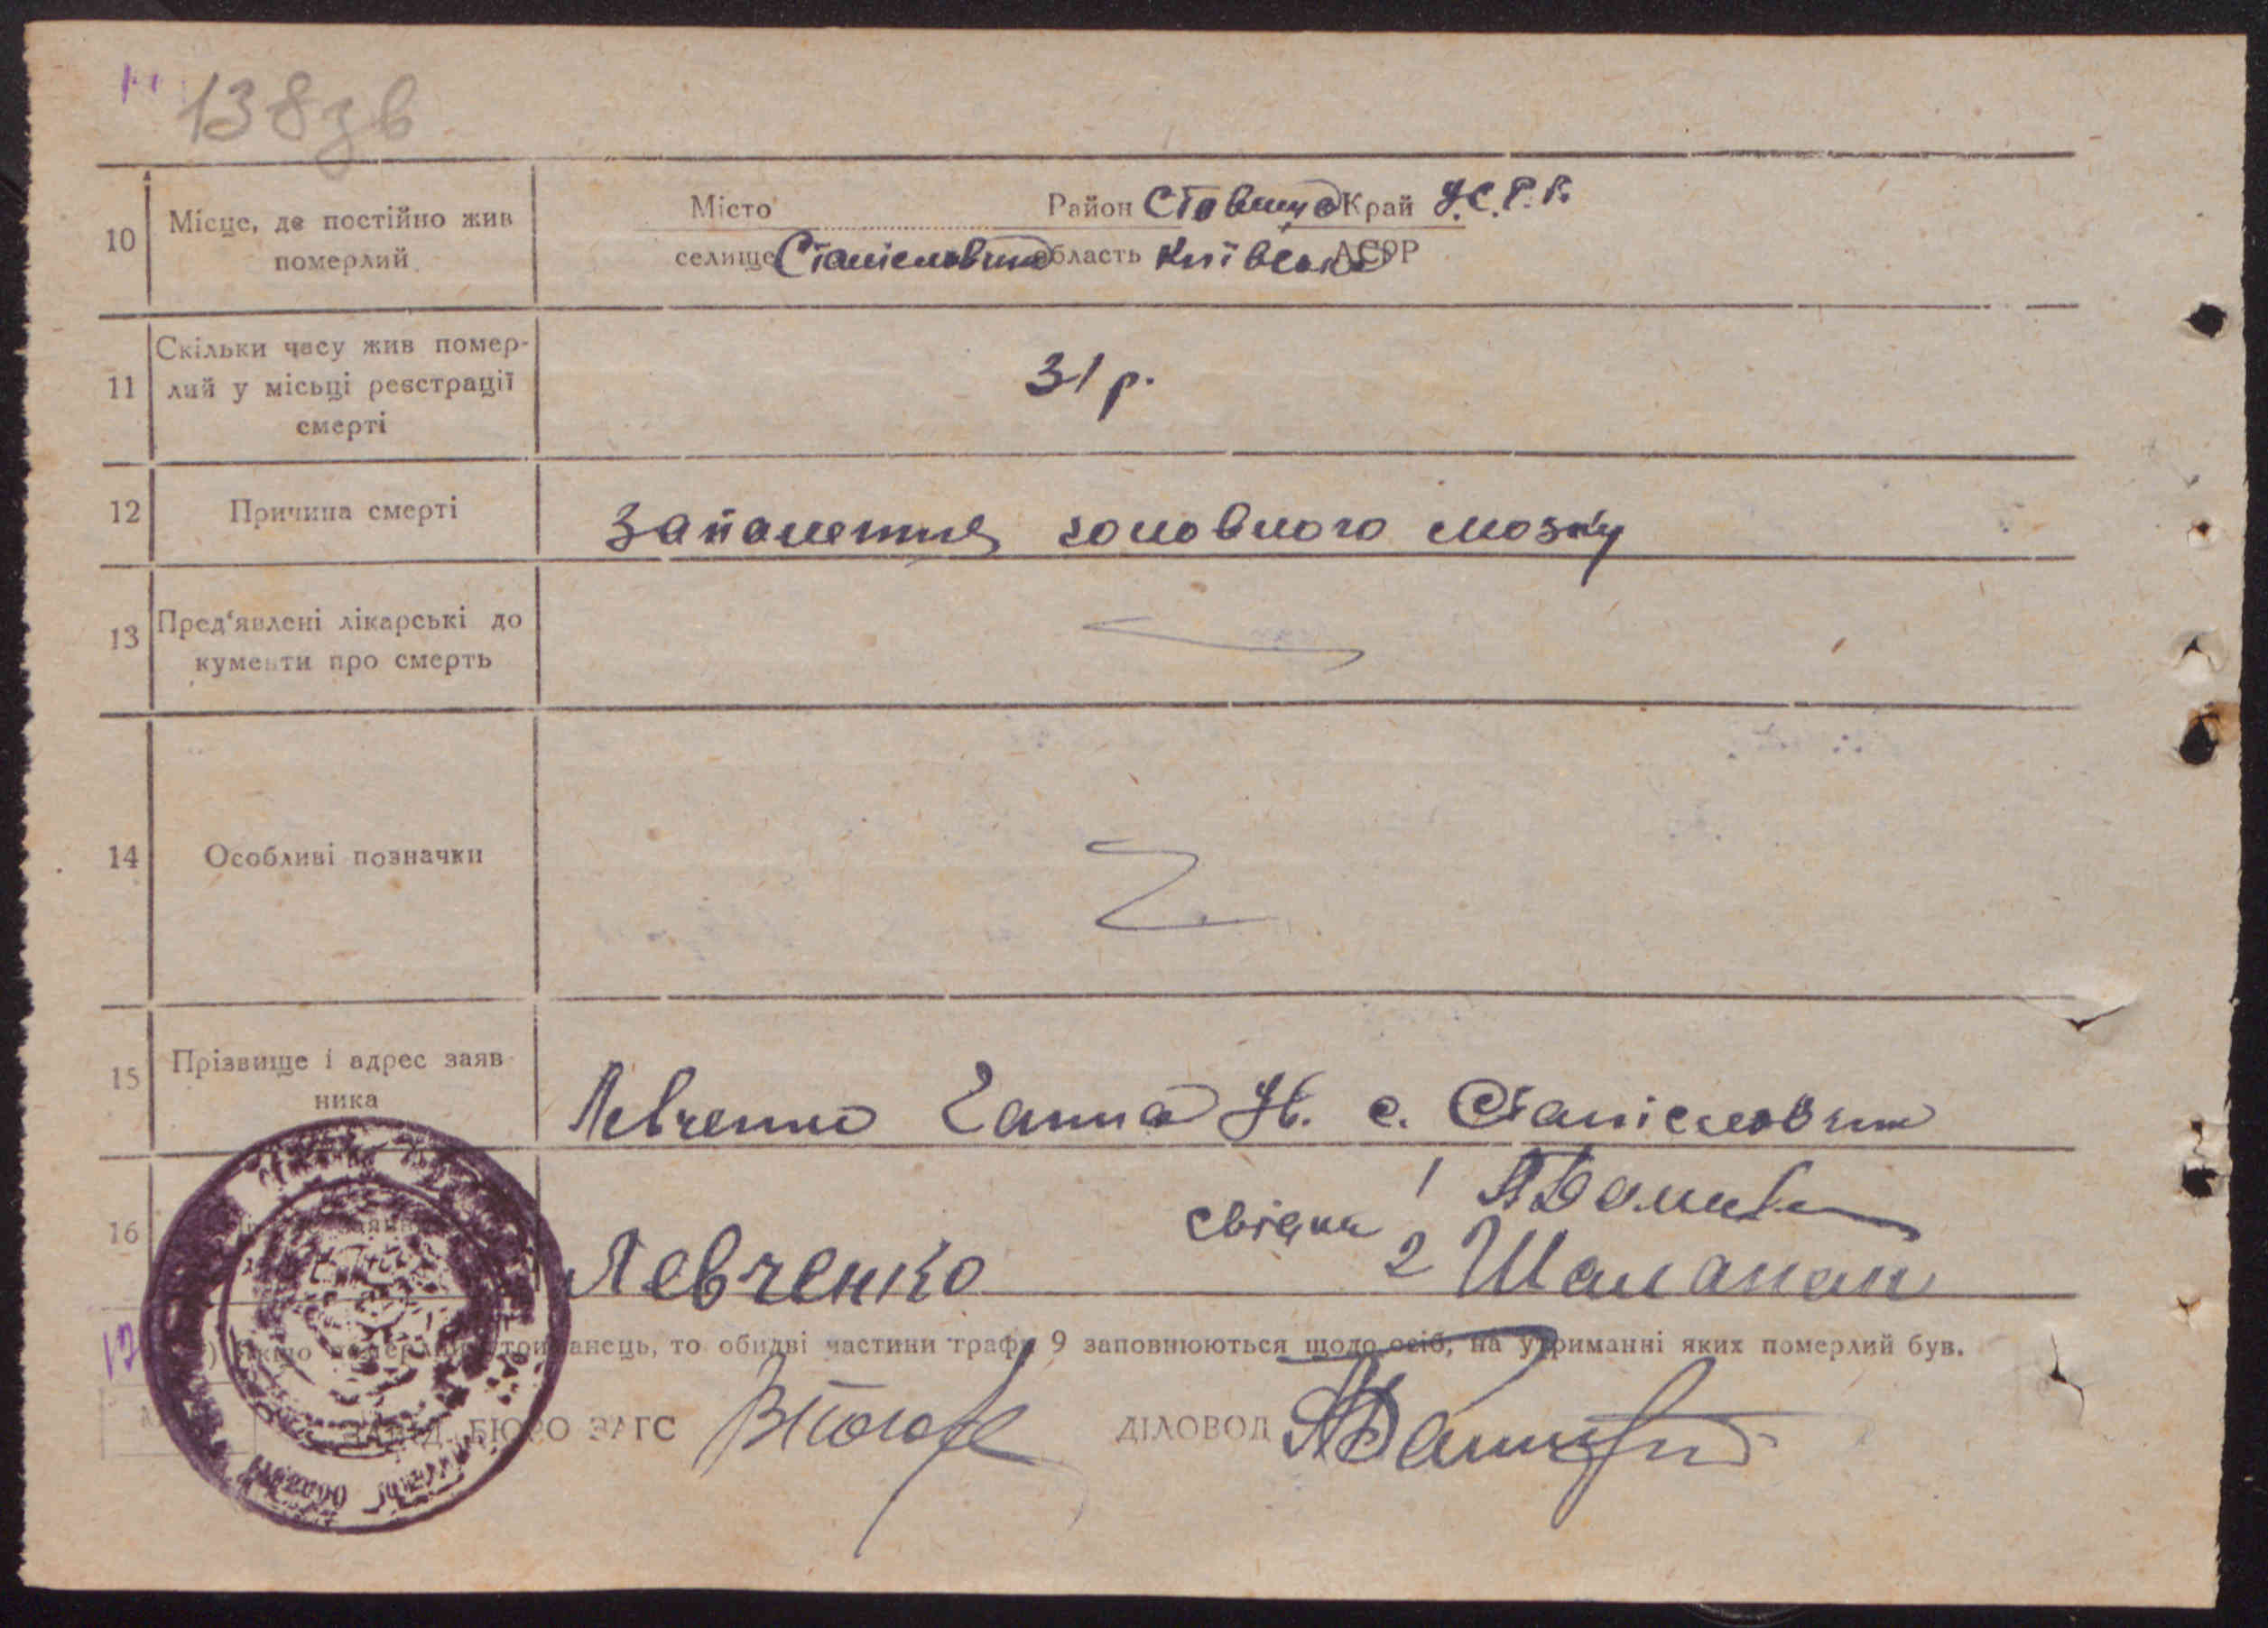 138зв
10 Місце, де постійно жив померлий
Місто Район Ставище Край У.С.Р.Р.
селище Станіславчик область Київська АСРР
11 Скільки часу жив помер-
лий у місьці реєстрації
смерті
31 р.
12 Причина смерті
Запалення головного мозку
13 Пред'явлені лікарські до
кументи про смерть
14 Особливі позначки
15 Прізвище і адрес заяв-
ника
Левченко Ганна Н. с. Станіславчик
16
свідки 1
Левченко 2
17
то обидві частини графи 9 заповнюються щодо осіб, на утриманні яких померлий був.
БЮРО ЗАГС ДІЛОВОД